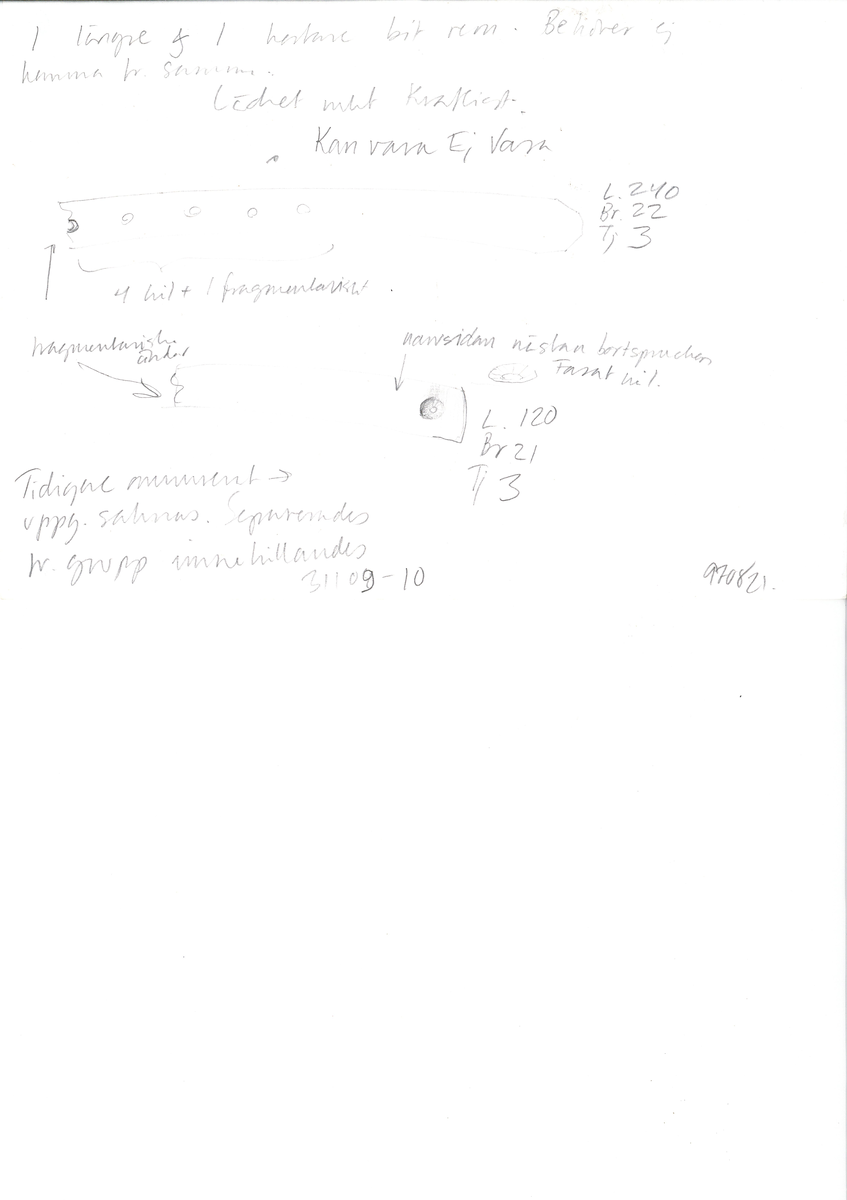 1 längre & 1 kortare bit rem. Behöver ej
komma fr. samma.
Lädret mkt kraftigt.
Kan vara Ej Vasa
L. 240
Br. 22
Tj 3
4 hål + 1 fragmentariskt.
fragmentarisk
ändar
narvsidan nästan bortsprucken
Fasat hål.
L. 120
Br 21
Tj 3
Tidigare nummer →
uppg. saknas. Separerades
fr. grupp innehållandes
31109-10
970821.